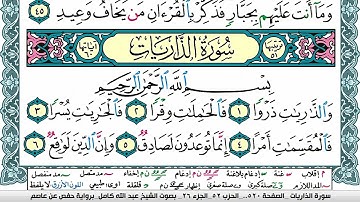 وَمَآ أَنتَ عَلَيْهِم بِجَبَّارٍ فَذَكِّرْ بِٱلْقُرْءَانِ مَن يَخَافُ وَعِيدِ ٤٥
سُورَةُ الذَّارِيَاتِ
بِسْمِ ٱللَّهِ ٱلرَّحْمَٰنِ ٱلرَّحِيمِ
وَٱلذَّٰرِيَٰتِ ذَرْوًا ١ فَٱلْحَٰمِلَٰتِ وِقْرًا ٢ فَٱلْجَٰرِيَٰتِ يُسْرًا ٣
فَٱلْمُقَسِّمَٰتِ أَمْرًا ٤ إِنَّمَا تُوعَدُونَ لَصَادِقٌ ٥ وَإِنَّ ٱلدِّينَ لَوَٰقِعٌ ٦
سورة الذاريات الصفحة ٥٢٠... الحزب ٥٢ .. الجزء ٢٦.. بصوت الشيخ عبد الله كامل. برواية حفص عن عاصم